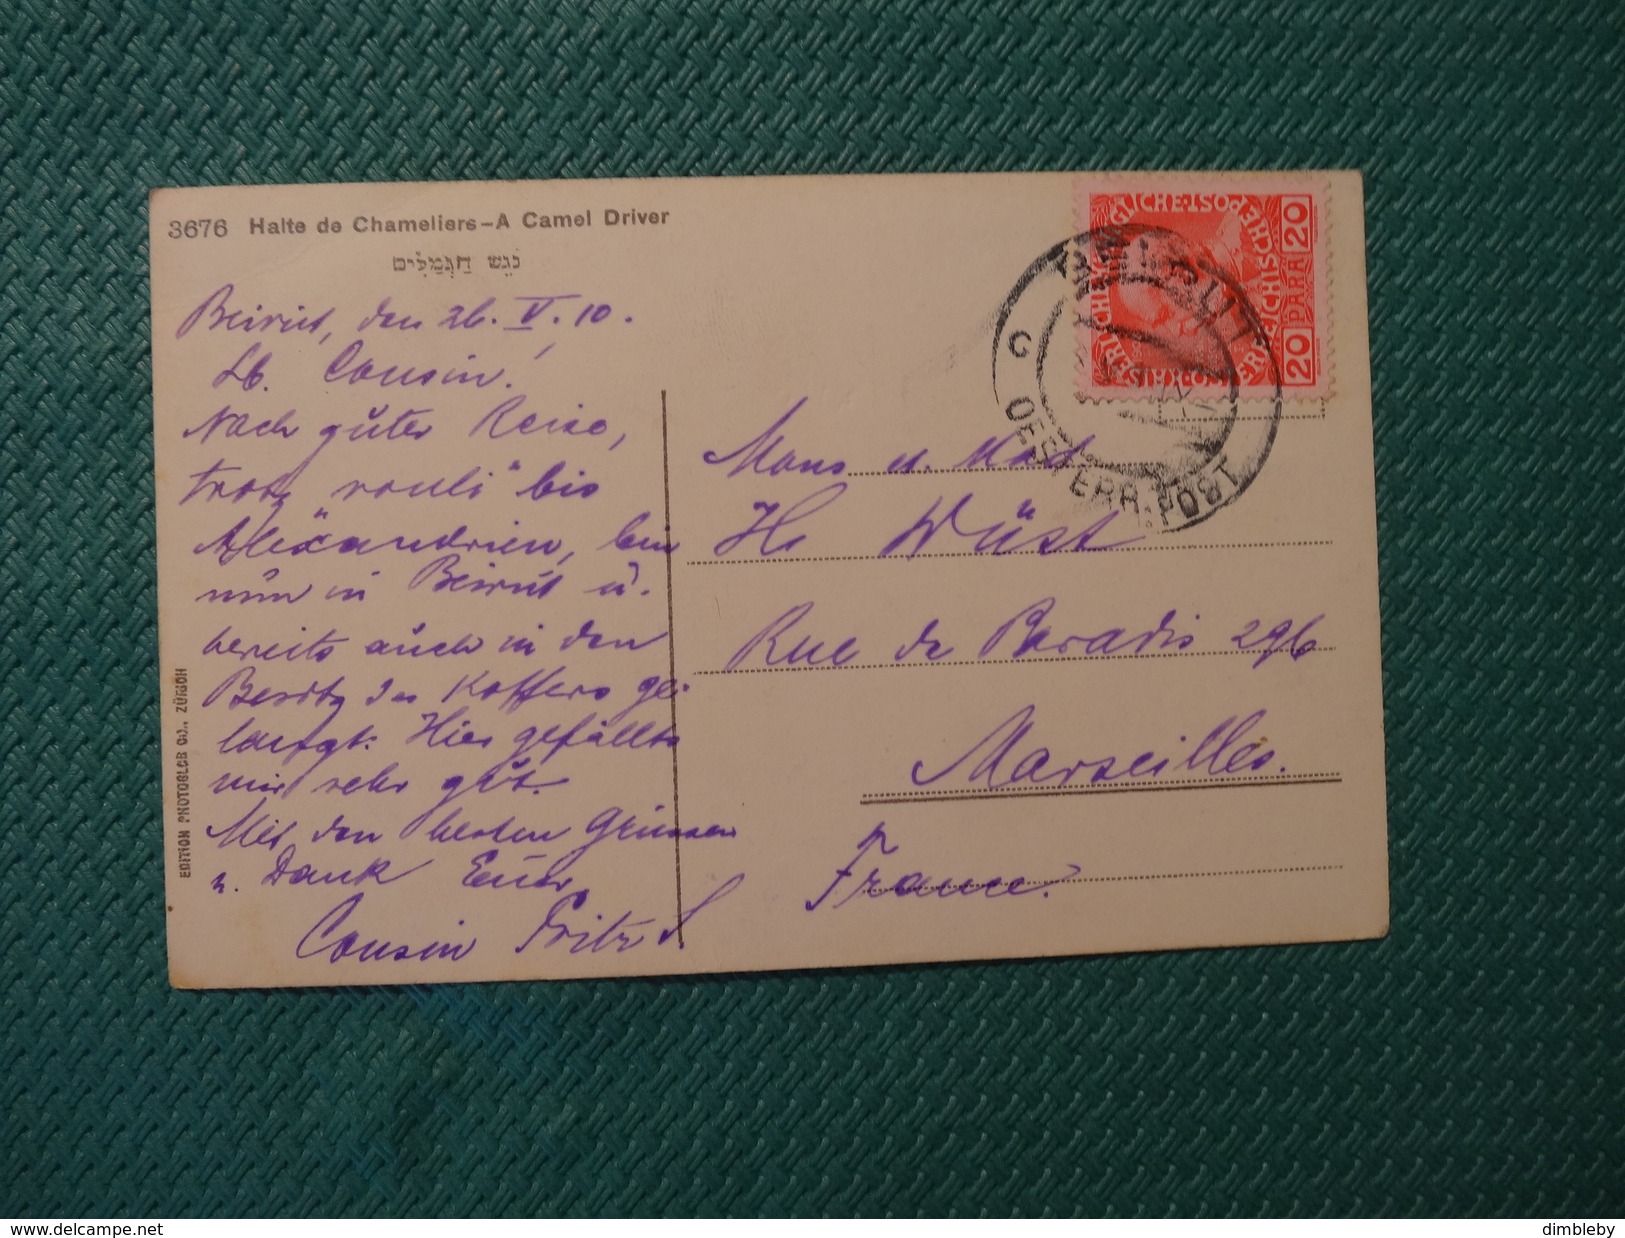 3676 Halte de Chameliers-A Camel Driver
נגש הגמלים
Beirut, den 26. V. 10.
Lb. Cousin!
Nach guter Reise,
trotz "rouli" bis
Alexandrien, bin
nun in Beirut u.
bereits auch in den
Besitz des Koffers ge-
langt. Hier gefällts
mir sehr gut.
Mit den besten Grüssen
u. Dank Euer
Cousin Fritz
EDITION PHOTOGLOB CO., ZÜRICH
KAISERLICHE KÖNIGLICHE POST
20 PARA 20
C OESTERR. POST
Mons u. Mad
Wüst
Rue de Paradis 296
Marseilles.
France.
www.delcampe.net
dimbleby